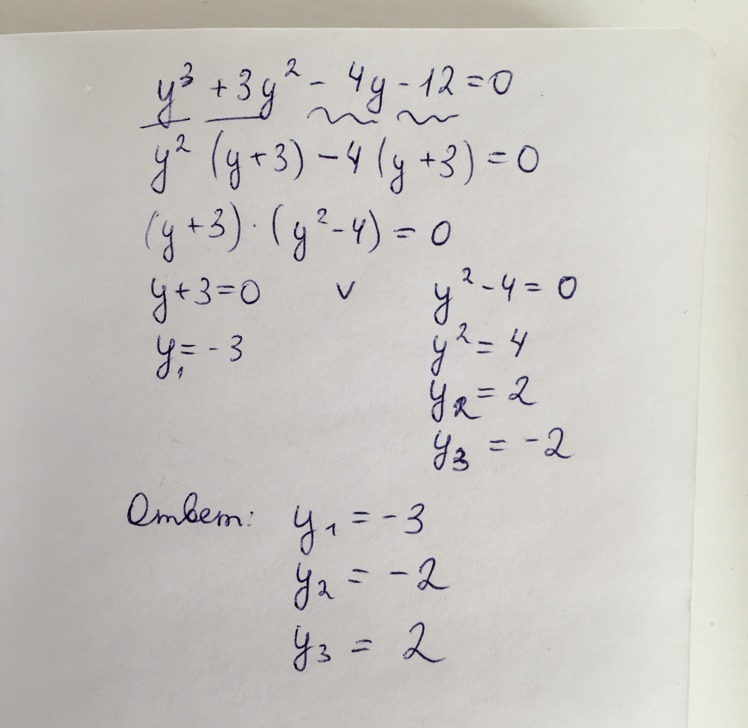 y³ + 3y² - 4y - 12 = 0
y² (y+3) - 4 (y+3) = 0
(y+3) · (y²-4) = 0
y+3=0 v y²-4=0
y₁=-3 y²=4
y₂=2
y₃=-2
Ответ: y₁=-3
y₂=-2
y₃=2